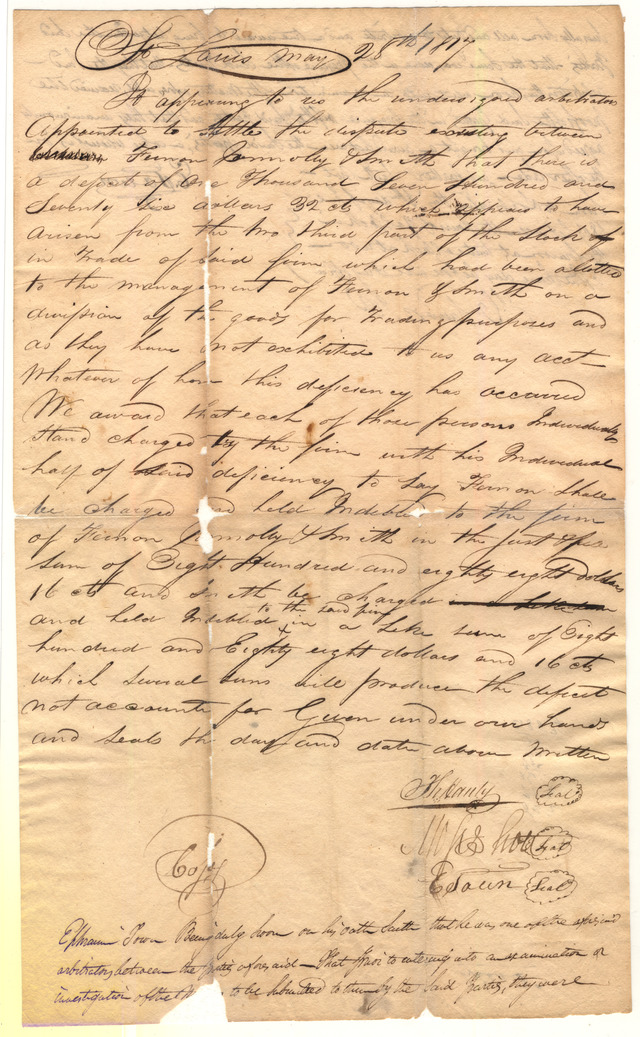 St Louis May 28th 1817
It appearing to us the undersigned arbitrators
Appointed to settle the dispute existing between
Fernon Jonnolly & Smith that there is
a deposit of One Thousand Seven Hundred and
Seventy Six dollars 32 cts which appears to have
arisen from the two third part of the Stock
in Trade of said firm which had been allotted
to the management of Fernon & Smith on a
division of the goods for Trading purposes and
as they have not exhibited to us any acct
Whatever of how this deficiency has occurred
We award that each of those persons Individually
Stand charged by the firm with his Individual
half of said deficiency to say Fernon Shall
be charged and held Indebted to the firm
of Fernon Jonnolly & Smith in the Just &
sum of Eight Hundred and eighty eight dollars
16 cts and Smith be charged
and held Indebted to the said firm in a Like sum of Eight
hundred and Eighty eight dollars and 16 cts
which several sums will produce the deficit
not accounted for Given under our hands
and seals the day and date above Written
Seal
Seal
E Town Seal
Copy
Ephraim Town Being duly sworn on his oath saith that he was one of the
arbitrators between the parties aforesaid - That prior to entering into an examination or
investigation of the to be submitted to them by the said parties, they were